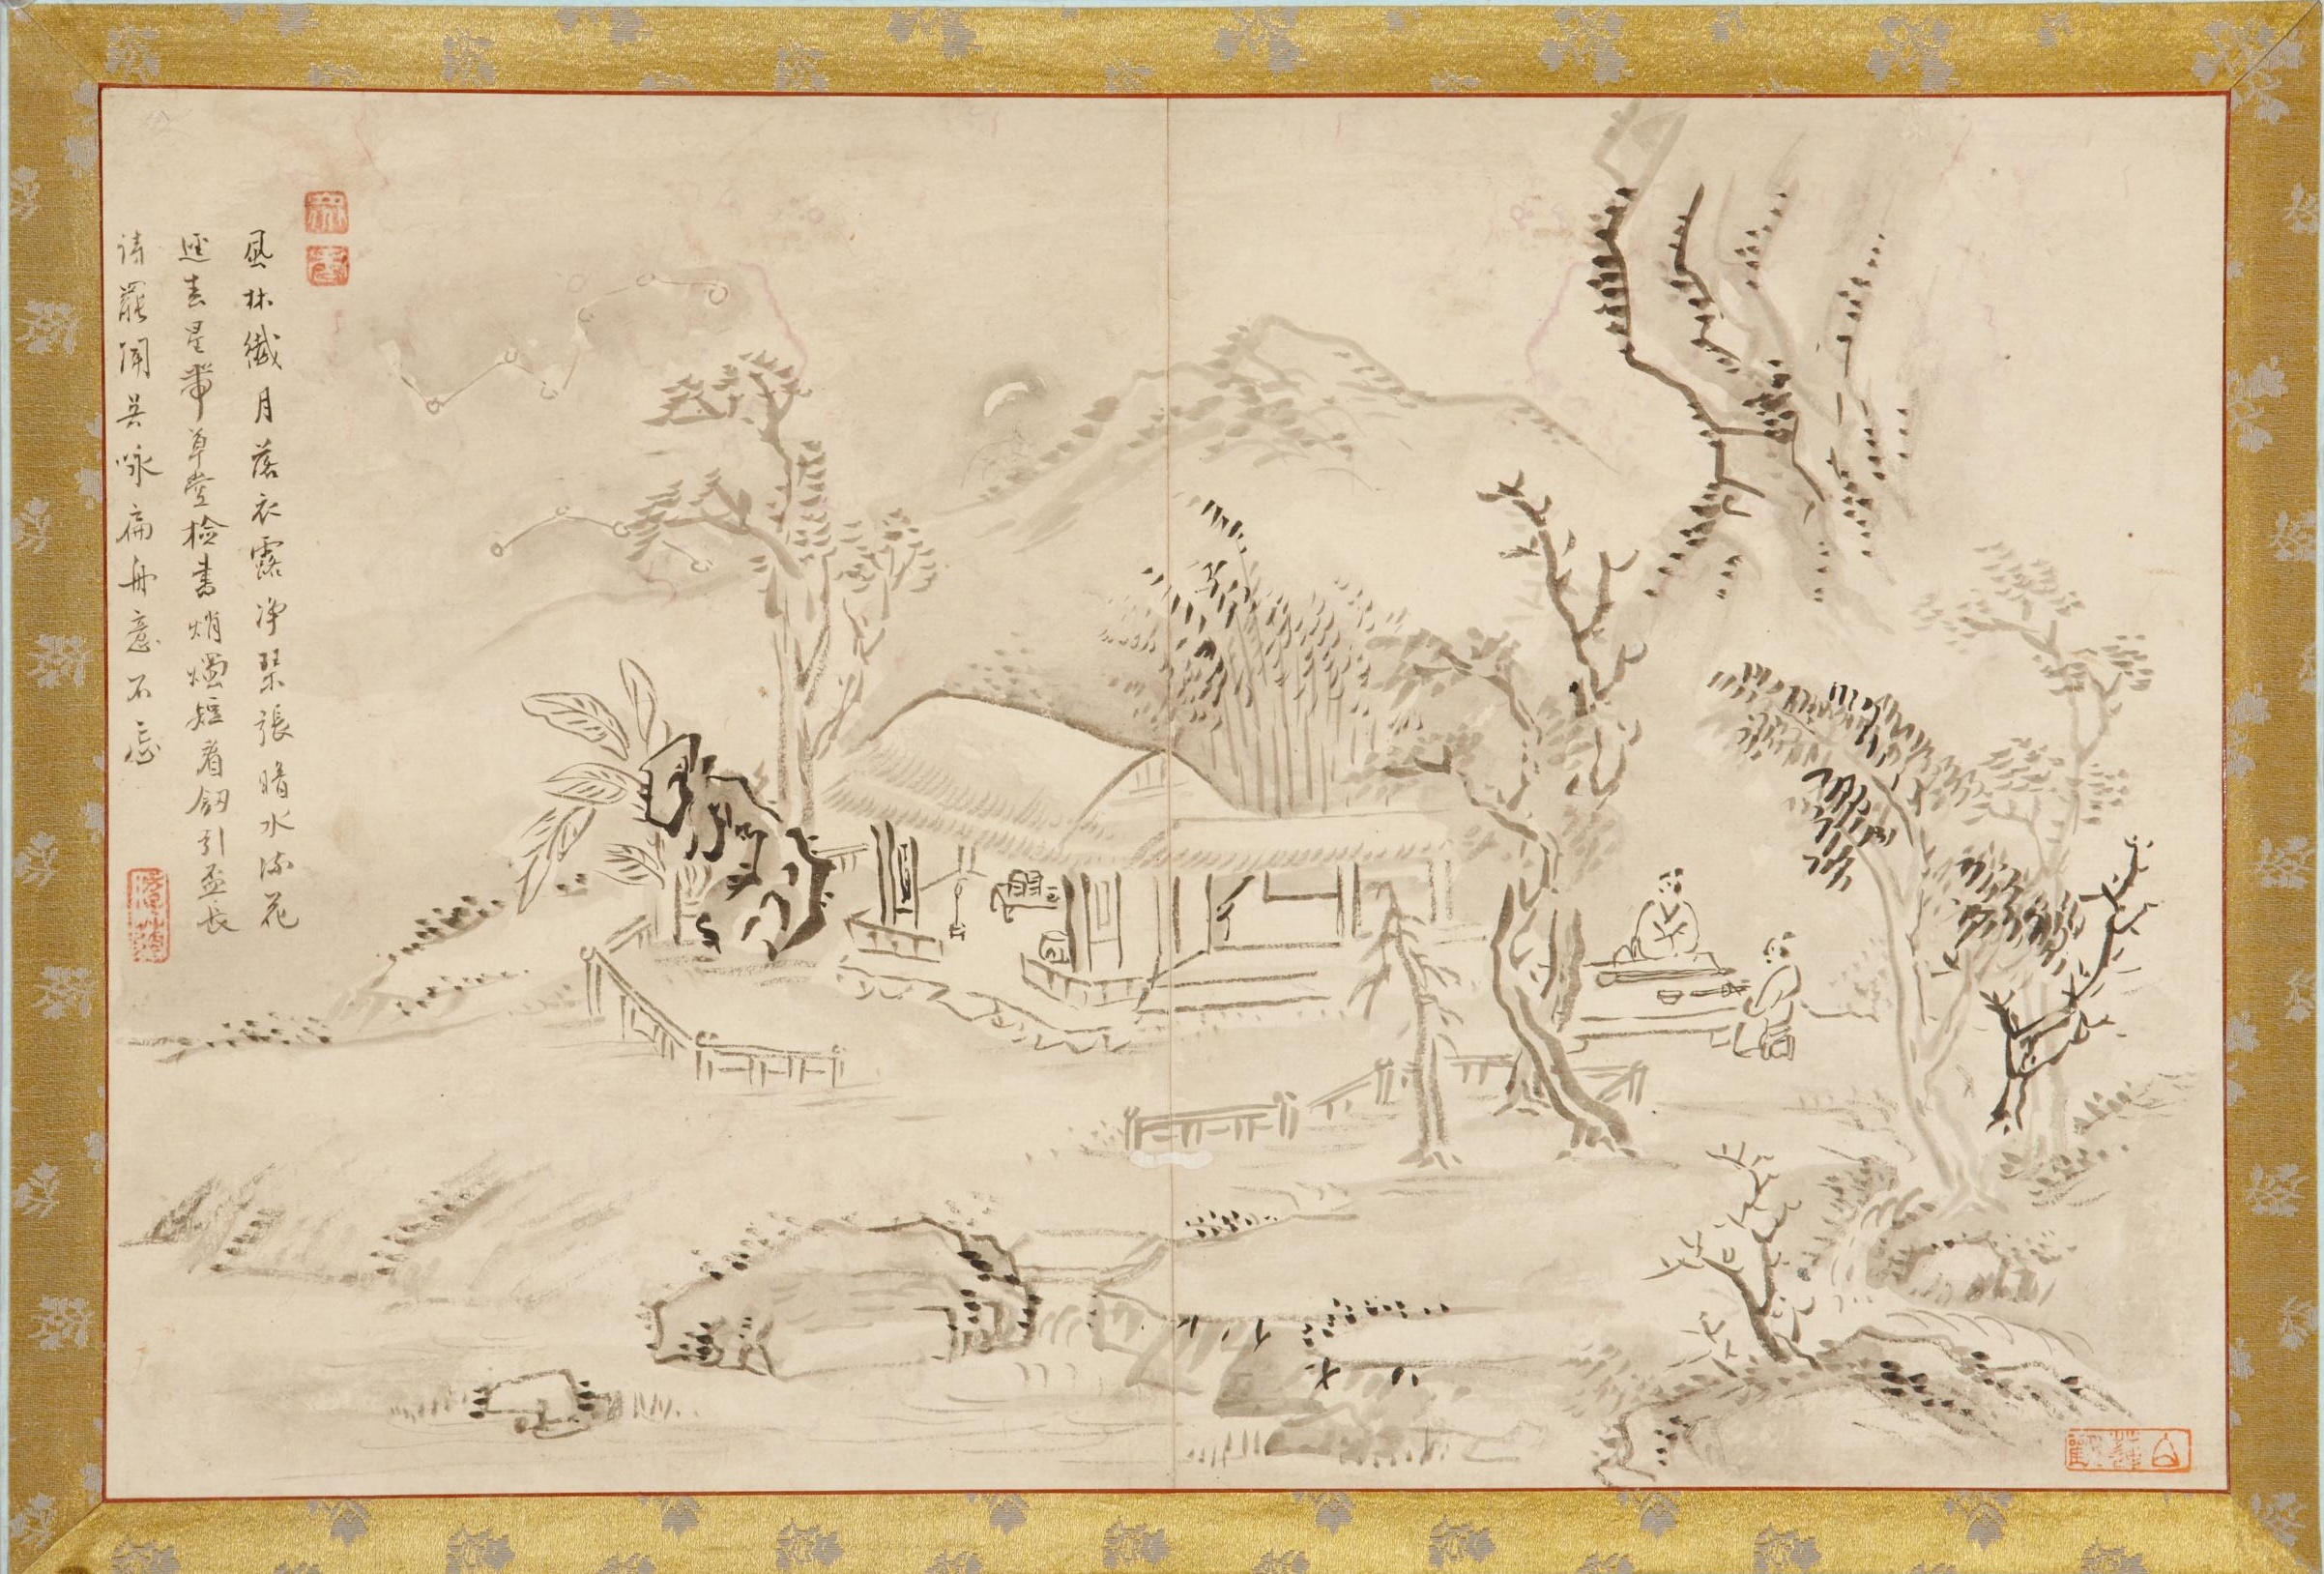 風林纖月落衣露净琹張暗水流花
逕春星帶草堂檢書燒燭短看釼引盃長
詩罷聞吳咏扁舟意不忘